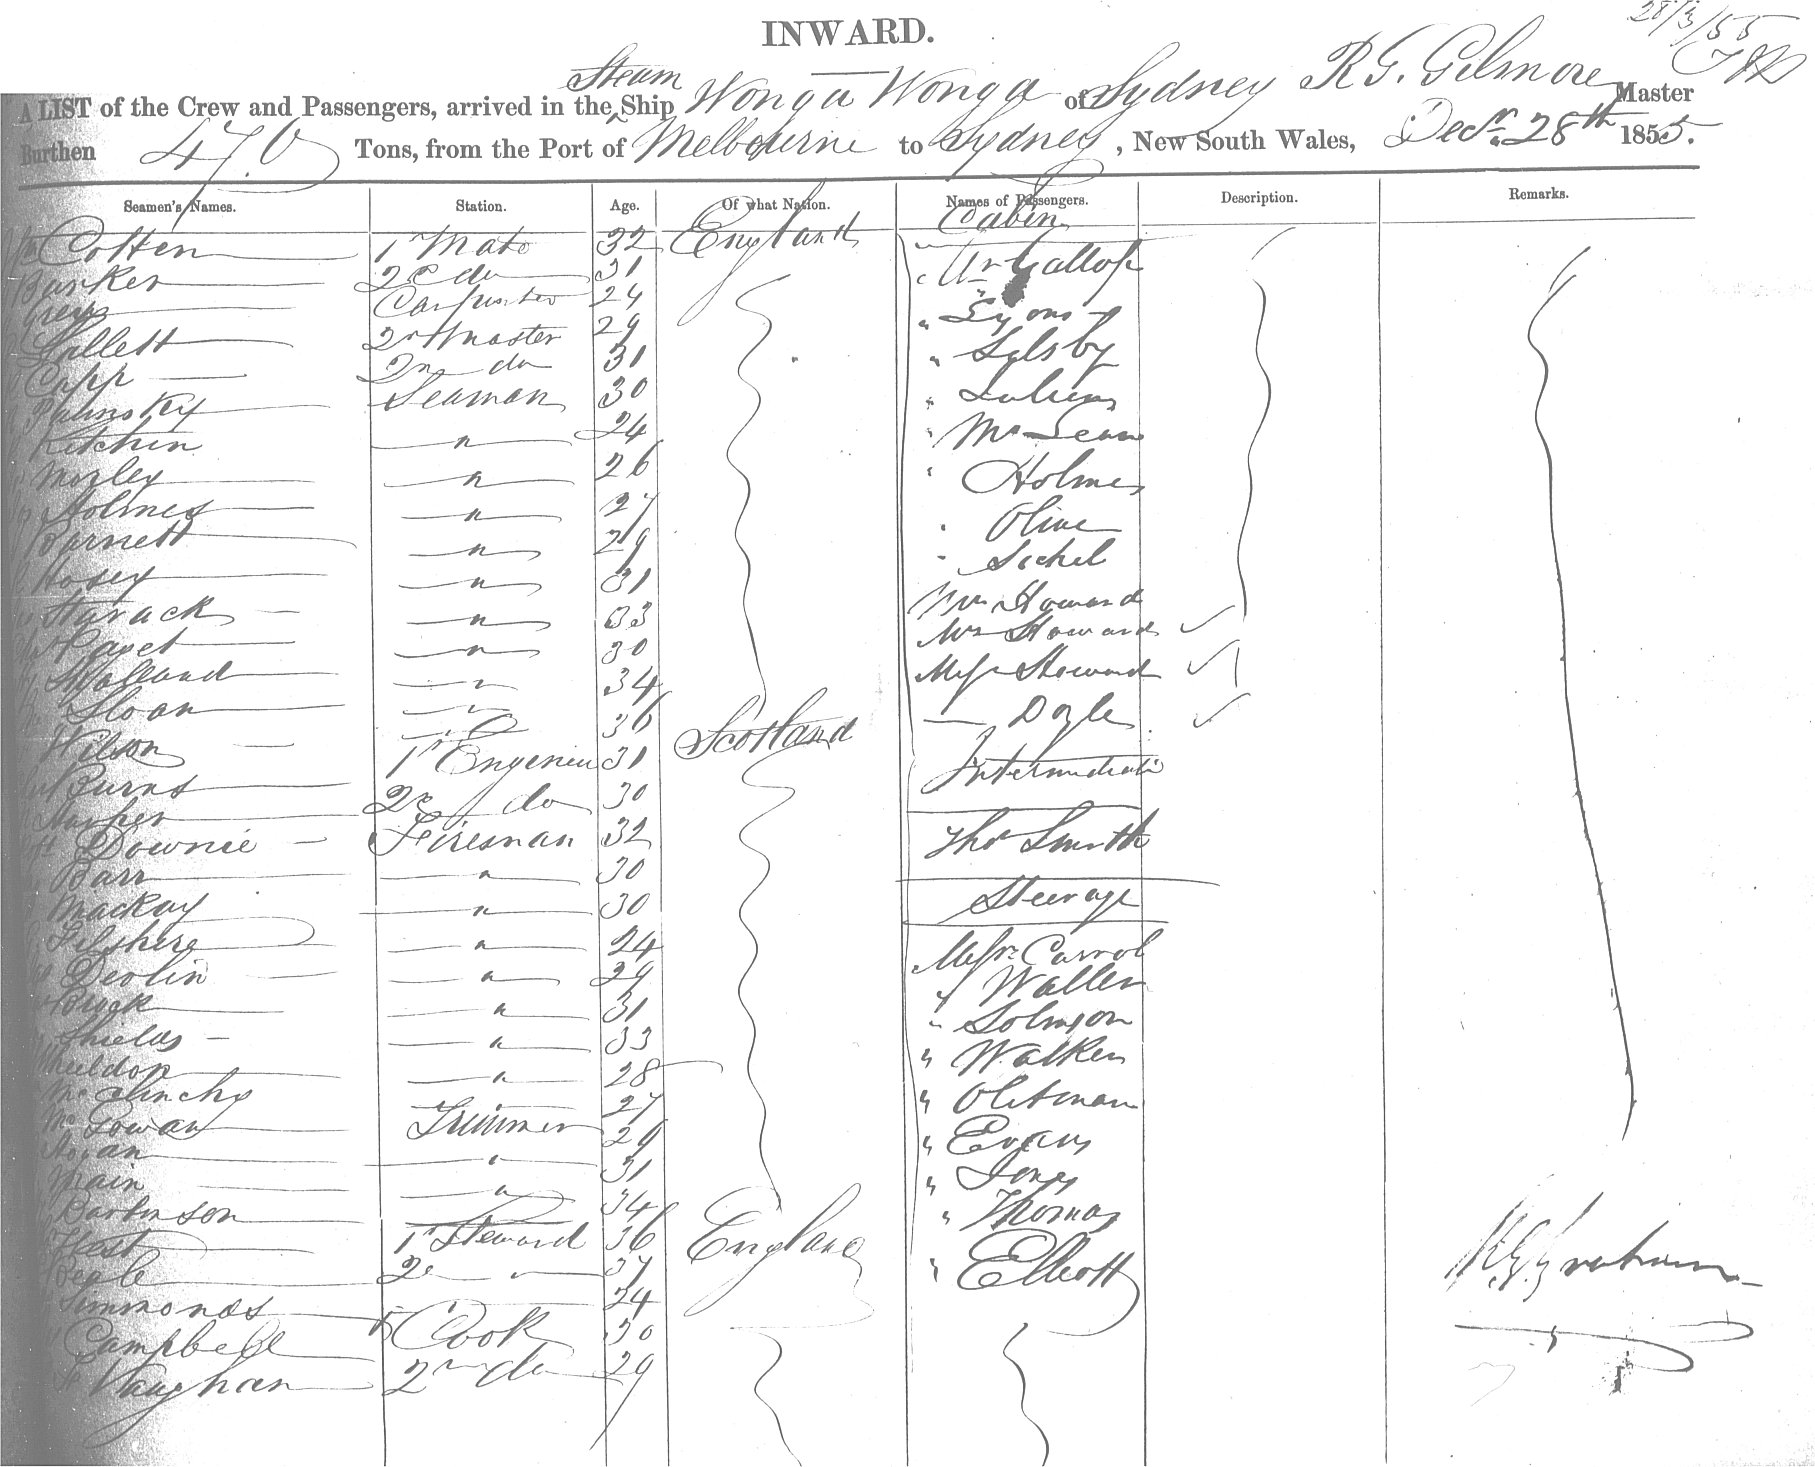 INWARD.
28/3/55
A LIST of the Crew and Passengers, arrived in the Steam Ship Wonga Wonga of Sydney R G. Gilmore Master
Burthen 470 Tons, from the Port of Melbourne to Sydney, New South Wales, Decr. 28th 1855.
Seamen's Names. Station. Age. Of what Nation. Names of Passengers. Description. Remarks.
Cabin
Cotten 1st Mate 32 England Mr Gallop
Barker 2d do 31
Grey Carpenter 24 " Lyons
Gillett 2r Master 29 " Selsby
Capp 2nr do 31
Palmsky Seaman 30
Kitchin " 24 " McLean
Morley " 26 " Holmes
Holmes " 27 " Olive
Barnett " 29 " Sichel
Hosey " 31 Mr Howard
Starack " 33 Mrs Howard
Paget " 30
Holland " 34 Miss Howard
Sloan " 36 — Doyle
Wilson 1st Engineer 31 Scotland Intermediate
Burns 2d do 30
Harper Fireman 32 Thos Smith
Downie " 30
Barr " 30 Steerage
Mackay " 24 Messrs Carrol
Filshire " 29 " Waller
Devlin " 31 " Solomon
Buck " 33 " Walker
Shields " 28
Wheeldon
McClinchy Trimmer 27
McGowan " 29 " Evans
Hogan " 31 " Jones
Main " 34 " Thomas
Parkinson 1st Steward 36 England " Elliott
West 2d " 37
Beale 24
Simmonds Cook 30
Campbell 2nr do 29
Vaughan